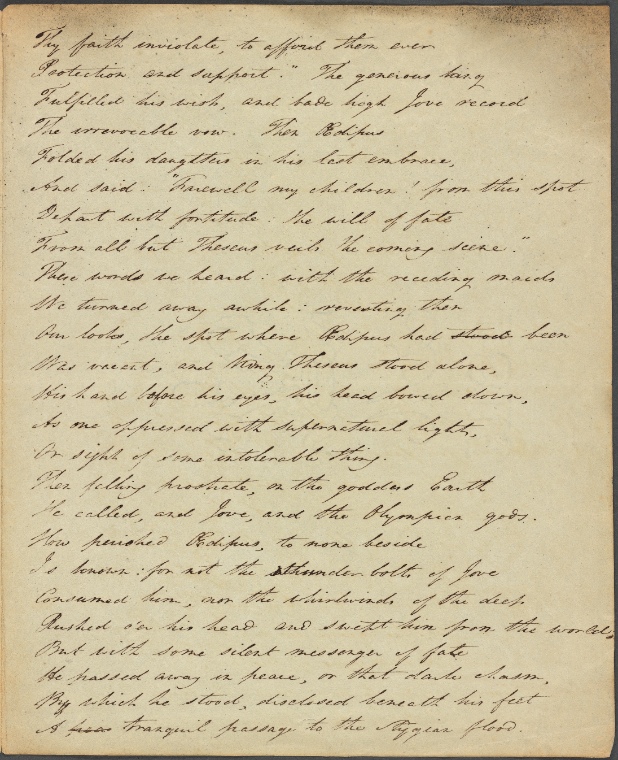 Thy faith inviolate, to afford them ever
Protection and support." The generous king
Fulfilled his wish, and bade high Jove record
The irrevocable vow. Then Œdipus
Folded his daughters in his last embrace,
And said: "Farewell my children! from this spot
Depart with fortitude: the will of fate
From all but Theseus veils the coming scene."
These words we heard: with the receding maids
We turned away awhile: reverting then
Our looks, the spot where Œdipus had stood been
Was vacant, and King Theseus stood alone,
His hand before his eyes, his head bowed down,
As one oppressed with supernatural light,
Or sight of some intolerable thing.
Then falling prostrate, on the goddess Earth
He called, and Jove, and the Olympian gods.
How perished Œdipus, to none beside
Is known: for not the thunder bolts of Jove
Consumed him, nor the whirlwinds of the deep
Rushed o'er his head and swept him from the world;
But with some silent messenger of fate
He passed away in peace, or that dark chasm,
By which he stood, disclosed beneath his feet
A tranquil passage to the Stygian flood.